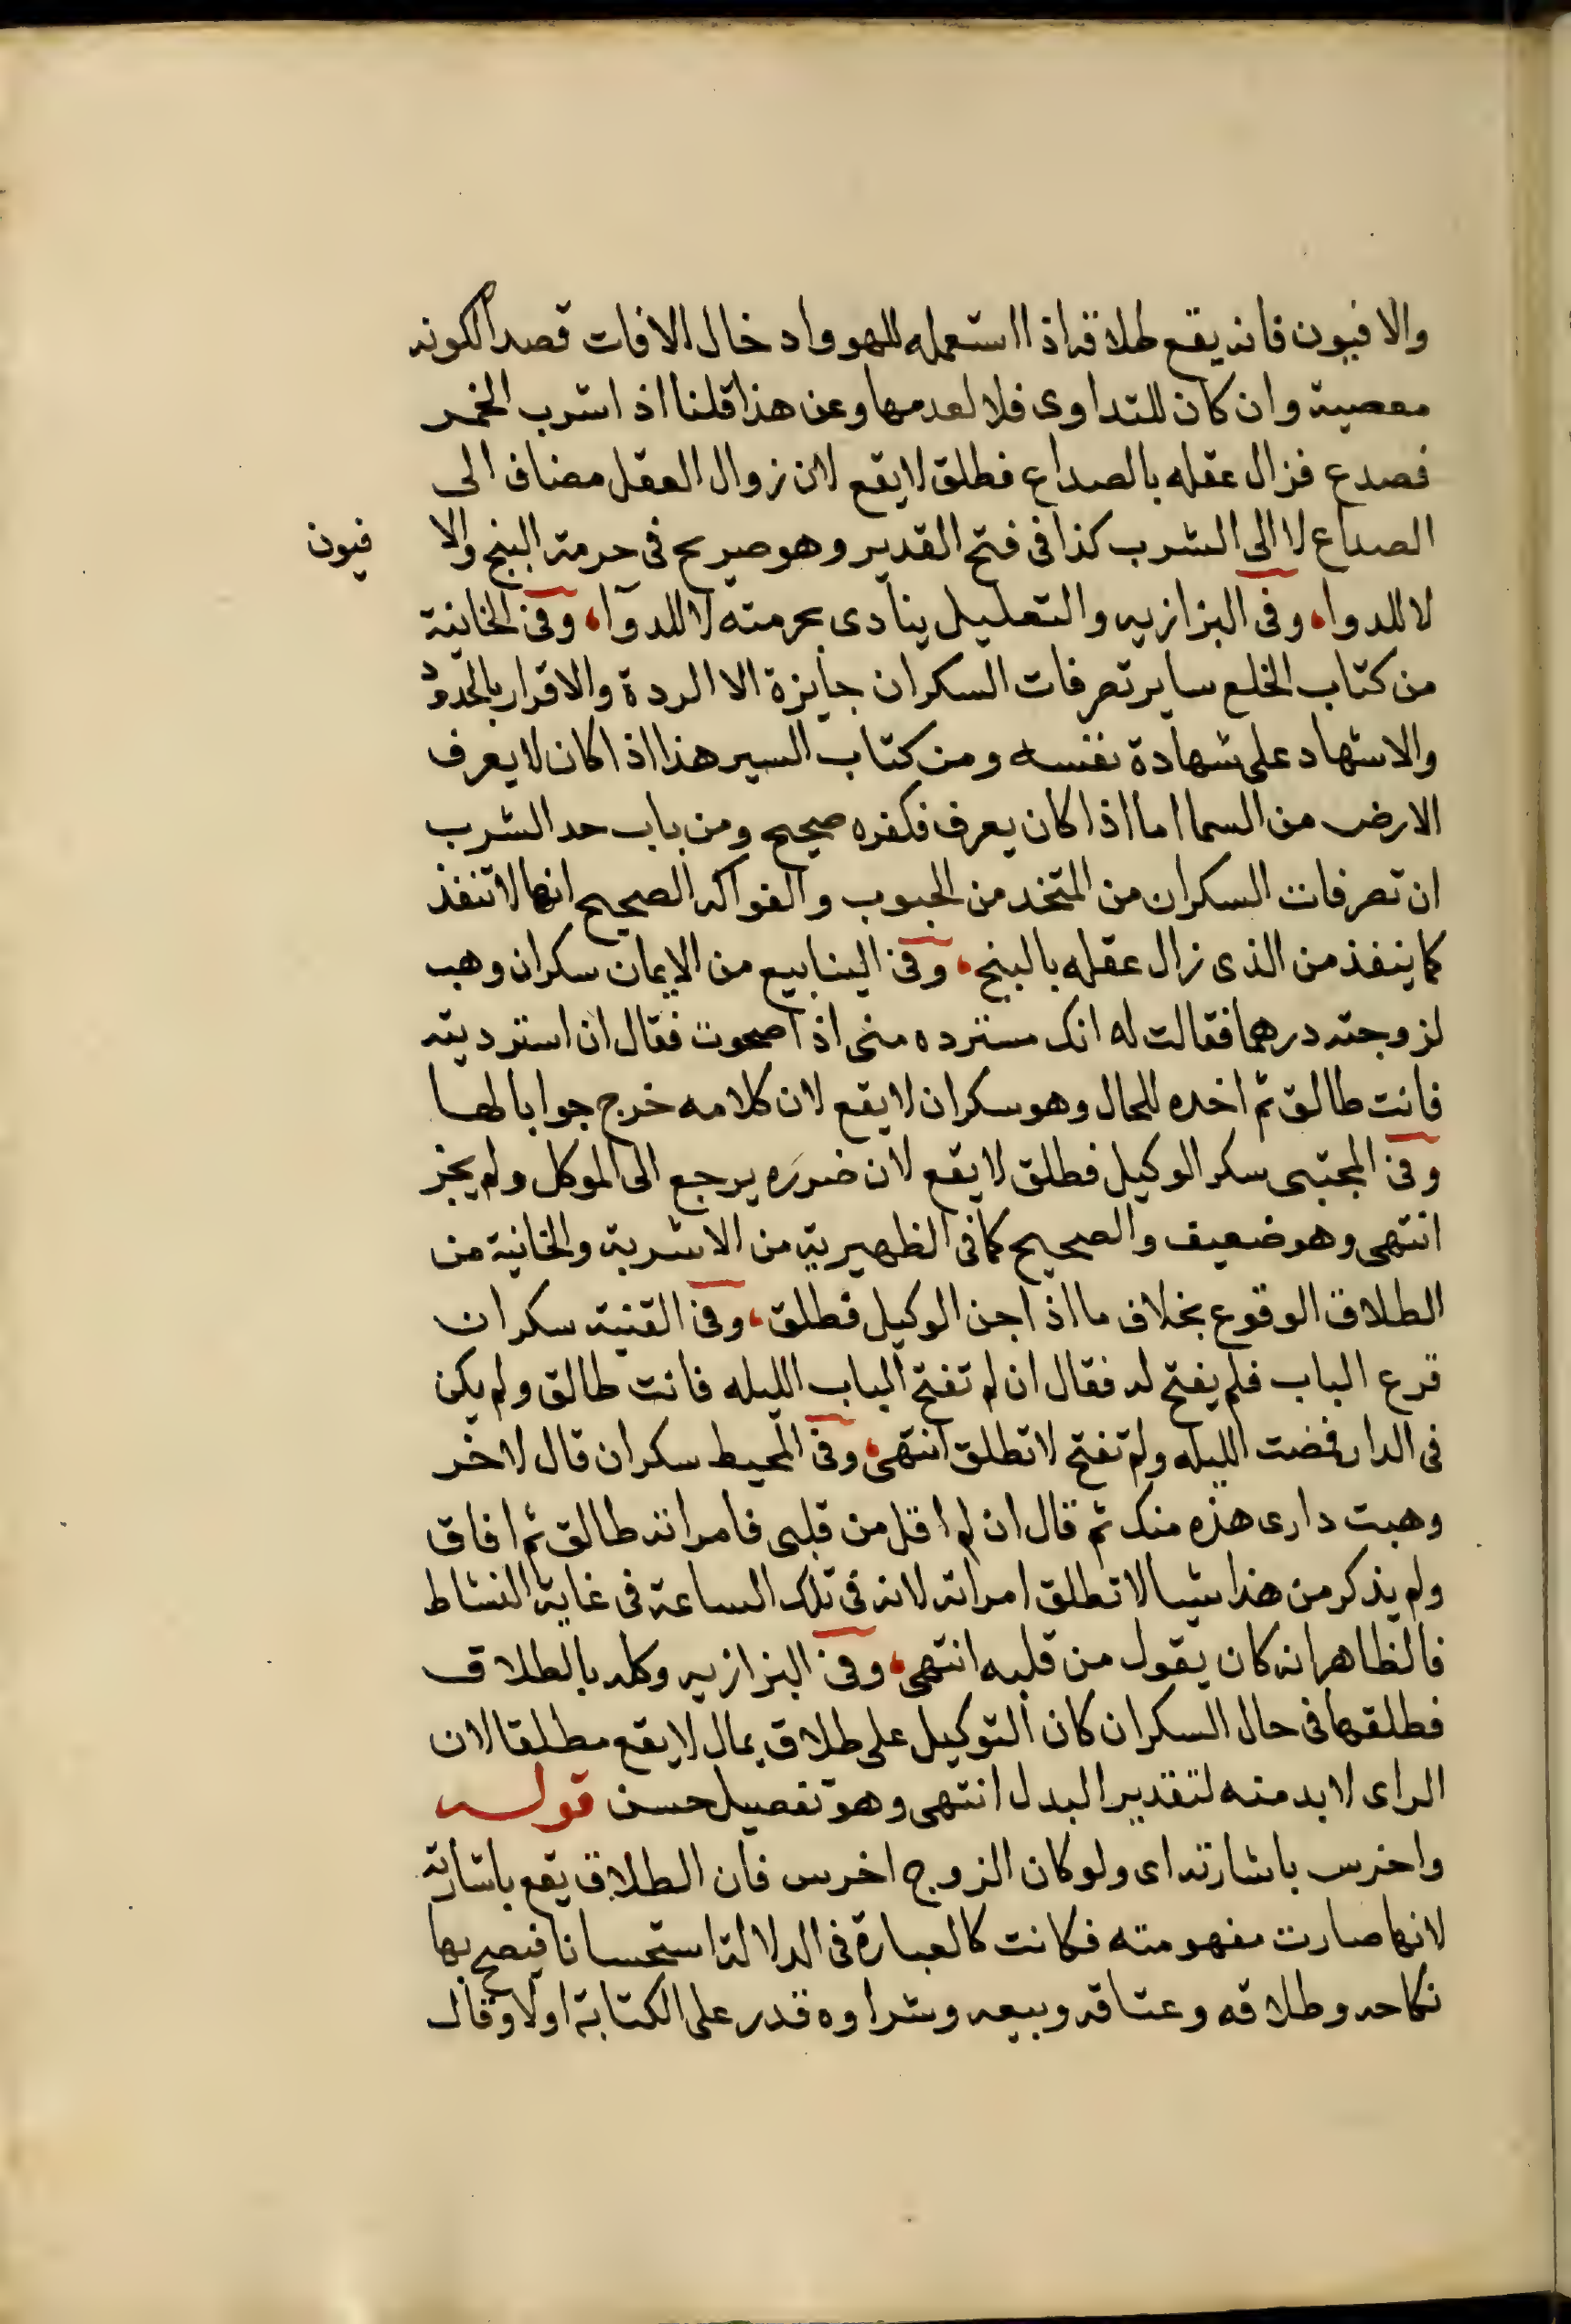 والافيون فانه يقع طلاقه اذا استعمله للهو وادخال الافات قصدا لكونه
معصية وان كان للتداوى فلا لعدمها وعن هذا قلنا اذا شرب الخمر
فصدع فزال عقله بالصداع فطلق لا يقع لان زوال العقل مضاف الى
الصداع لا الى الشرب كذا فى فتح القدير وهو صريح فى حرمة البنج والا فيون
لا للدوا، وفى البزازيه والتعليل ينادى بحرمته لا للدوا، وفى الخانية
من كتاب الخلع ساير تصرفات السكران جايزة الا الردة والاقرار بالحدود
والاشهاد على شهادة نفسه ومن كتاب السير هذا اذا كان لا يعرف
الارض من السما اما اذا كان يعرف فكفره صحيح ومن باب حد الشرب
ان تصرفات السكران من المتخد من الحبوب والفواكه الصحيح انها لا تنفذ
كما ينفذ من الذى زال عقله بالبنج، وفى الينابيع من الايمان سكران وهب
لزوجته درهما فقالت له انك مسترده منى اذا صحوت فقال ان استرديته
فانت طالق ثم اخده للحال وهو سكران لا يقع لان كلامه خرج جوابا لها
وفى المجتبى سكر الوكيل فطلق لا يقع لان ضرره يرجع الى الموكل ولم يجز
انتهى وهو ضعيف والصحيح كما فى الظهيرية من الاشربة والخانية من
الطلاق الوقوع بخلاف ما اذا جن الوكيل فطلق، وفى القنية سكران
قرع الباب فلم يفتح له فقال ان لم تفتح الباب الليله فانت طالق ولم يكن
فى الدار فمضت الليله ولم تفتح لا تطلق انتهى، وفى المحيط سكران قال لاخر
وهبت دارى هذه منك ثم قال ان لم اقل من قلبى فامراته طالق ثم افاق
ولم يذكر من هذا شيا لا تطلق امراته لانه فى تلك الساعة فى غاية النشاط
فالظاهر انه كان يقول من قلبه انتهى، وفى البزازيه وكله بالطلاق
فطلقها فى حال السكران كان التوكيل على طلاق بمال لا يقع مطلقا لان
الراى لا بد منه لتقدير البدل انتهى وهو تفصيل حسن قوله
واخرس باشارته اى ولو كان الزوج اخرس فان الطلاق يقع باشارته
لانها صارت مفهومته فكانت كالعبارة فى الدلالة استحسانا فيصح بها
نكاحه وطلاقه وعتاقه وبيعه وشراوه قدر على الكتابة اولا وقال